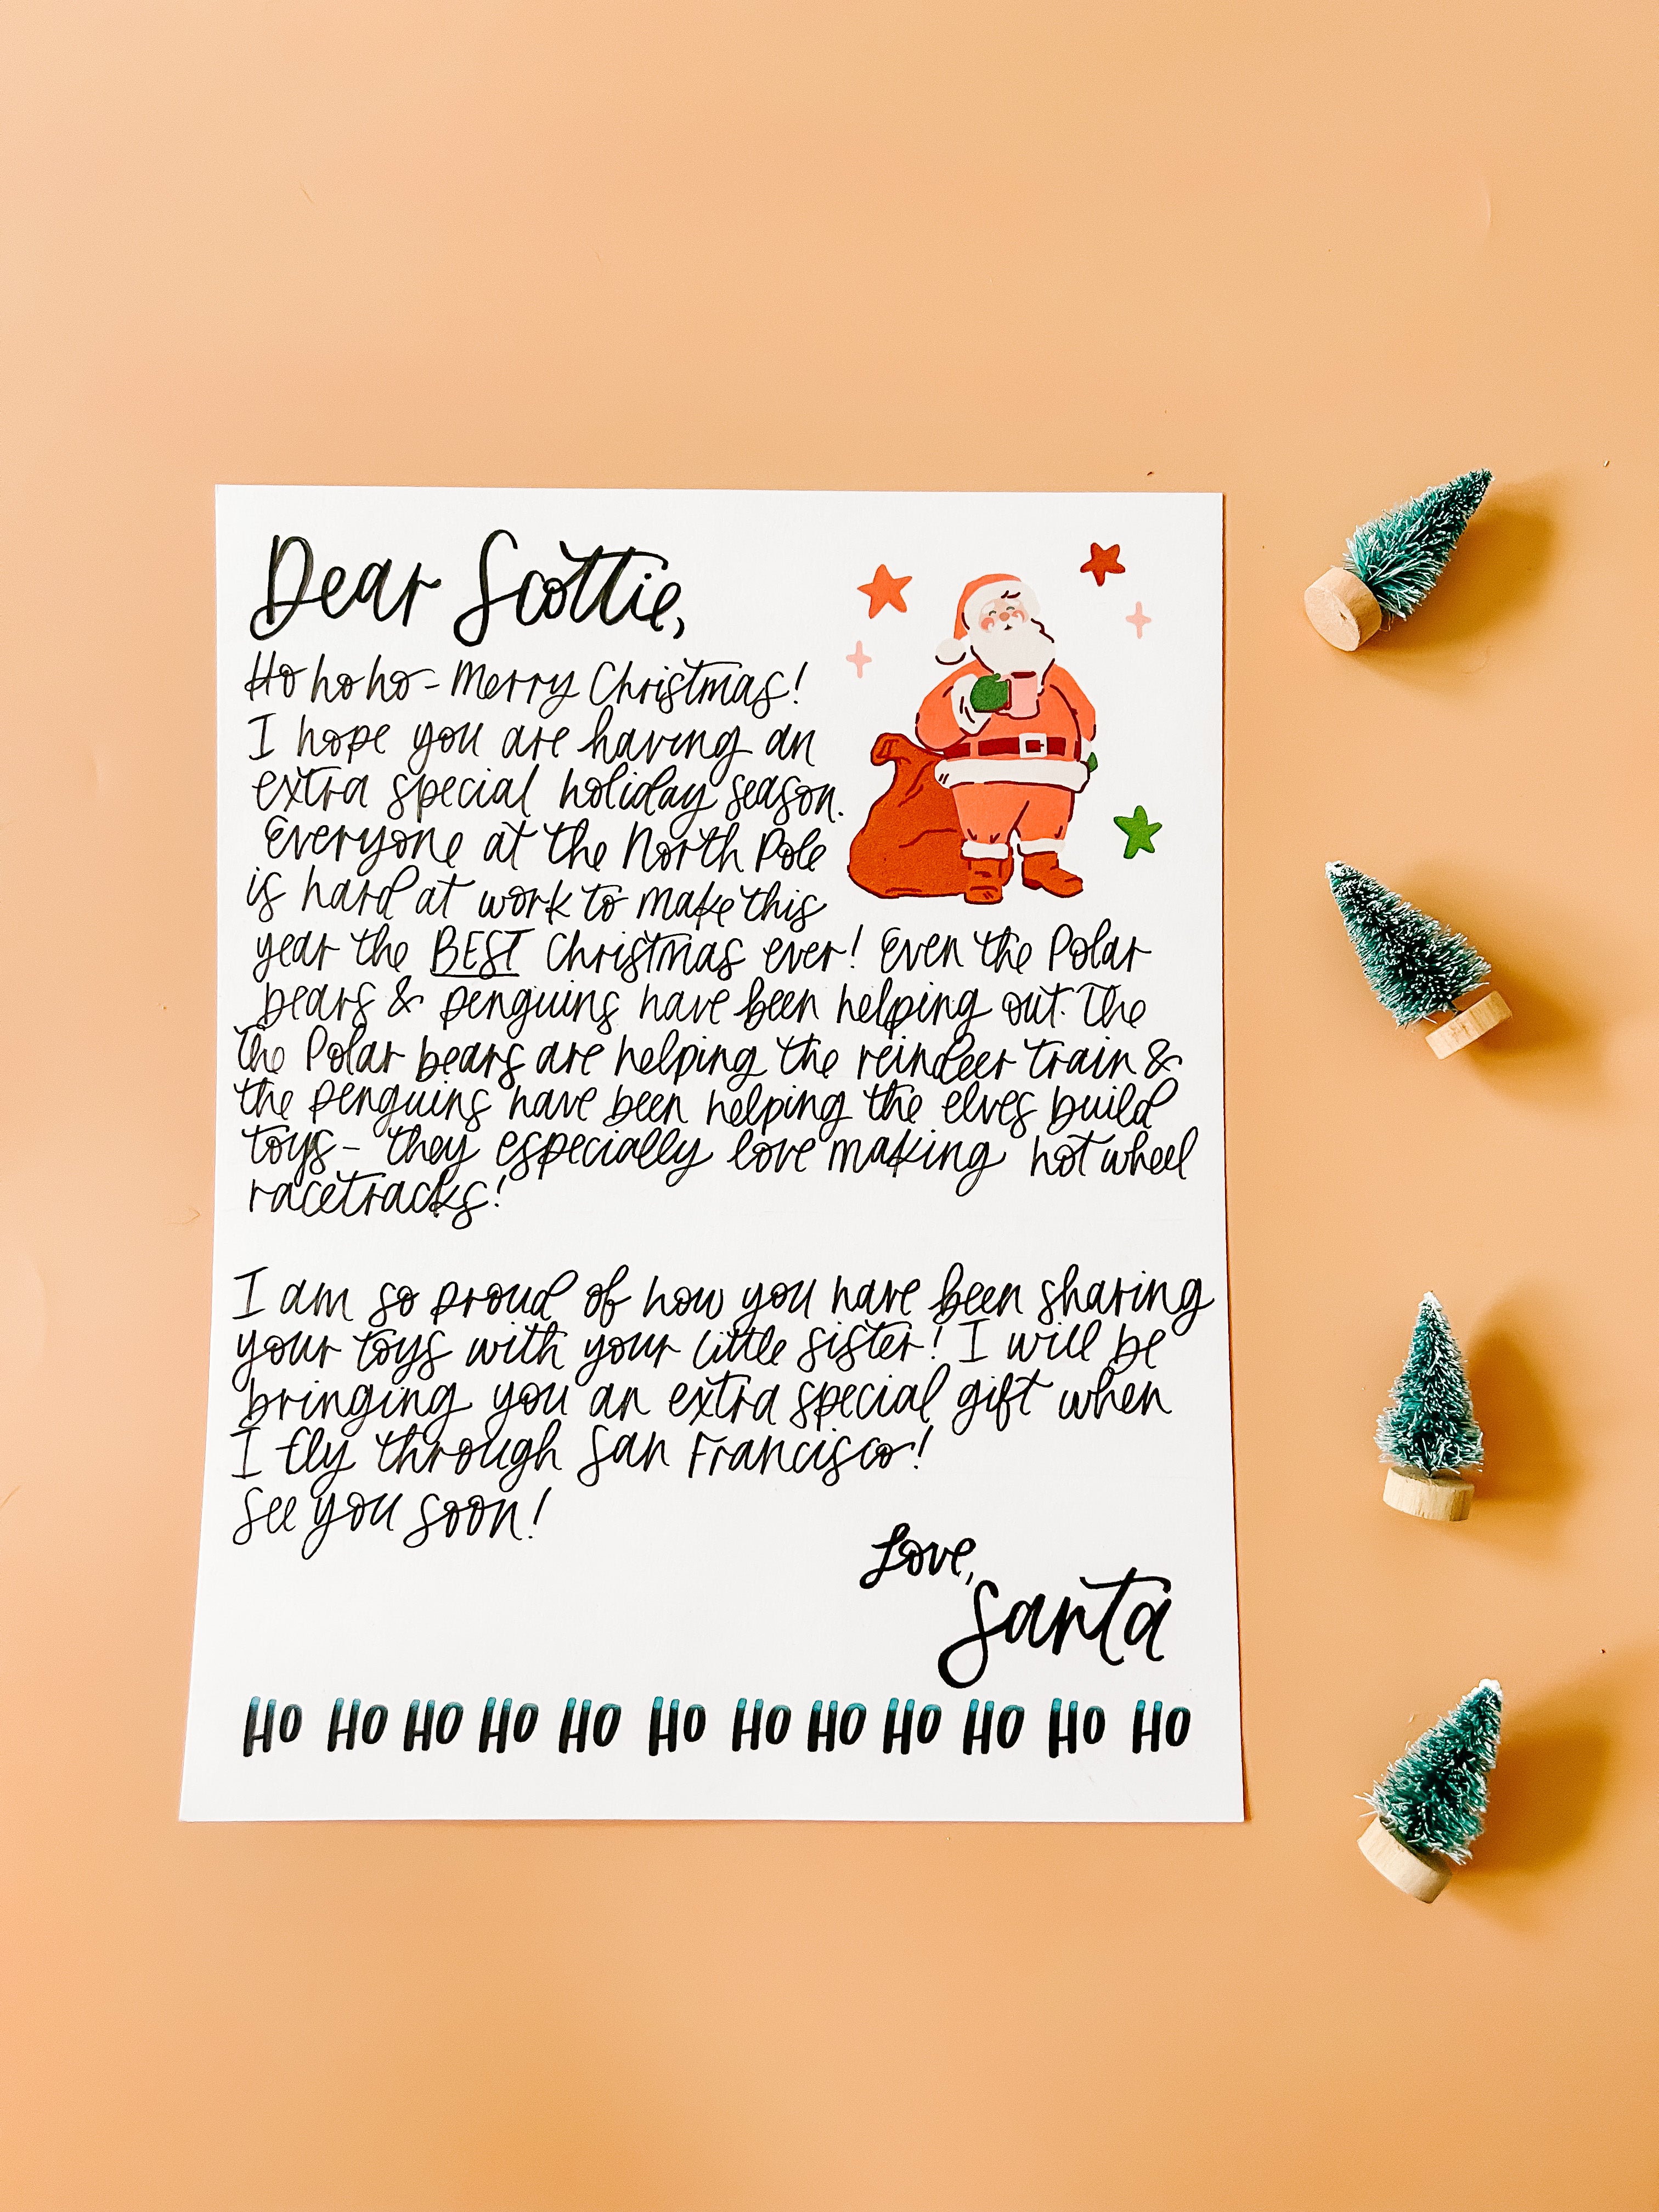 Dear Scottie,
Ho ho ho - Merry Christmas!
I hope you are having an
extra special holiday season.
Everyone at the North Pole
is hard at work to make this
year the BEST Christmas ever! Even the Polar
bears & penguins have been helping out. The
the Polar bears are helping the reindeer train &
the penguins have been helping the elves build
toys - they especially love making hot wheel
racetracks!
I am so proud of how you have been sharing
your toys with your little sister! I will be
bringing you an extra special gift when
I fly through San Francisco!
See you soon!
Love,
Santa
HO HO HO HO HO HO HO HO HO HO HO HO